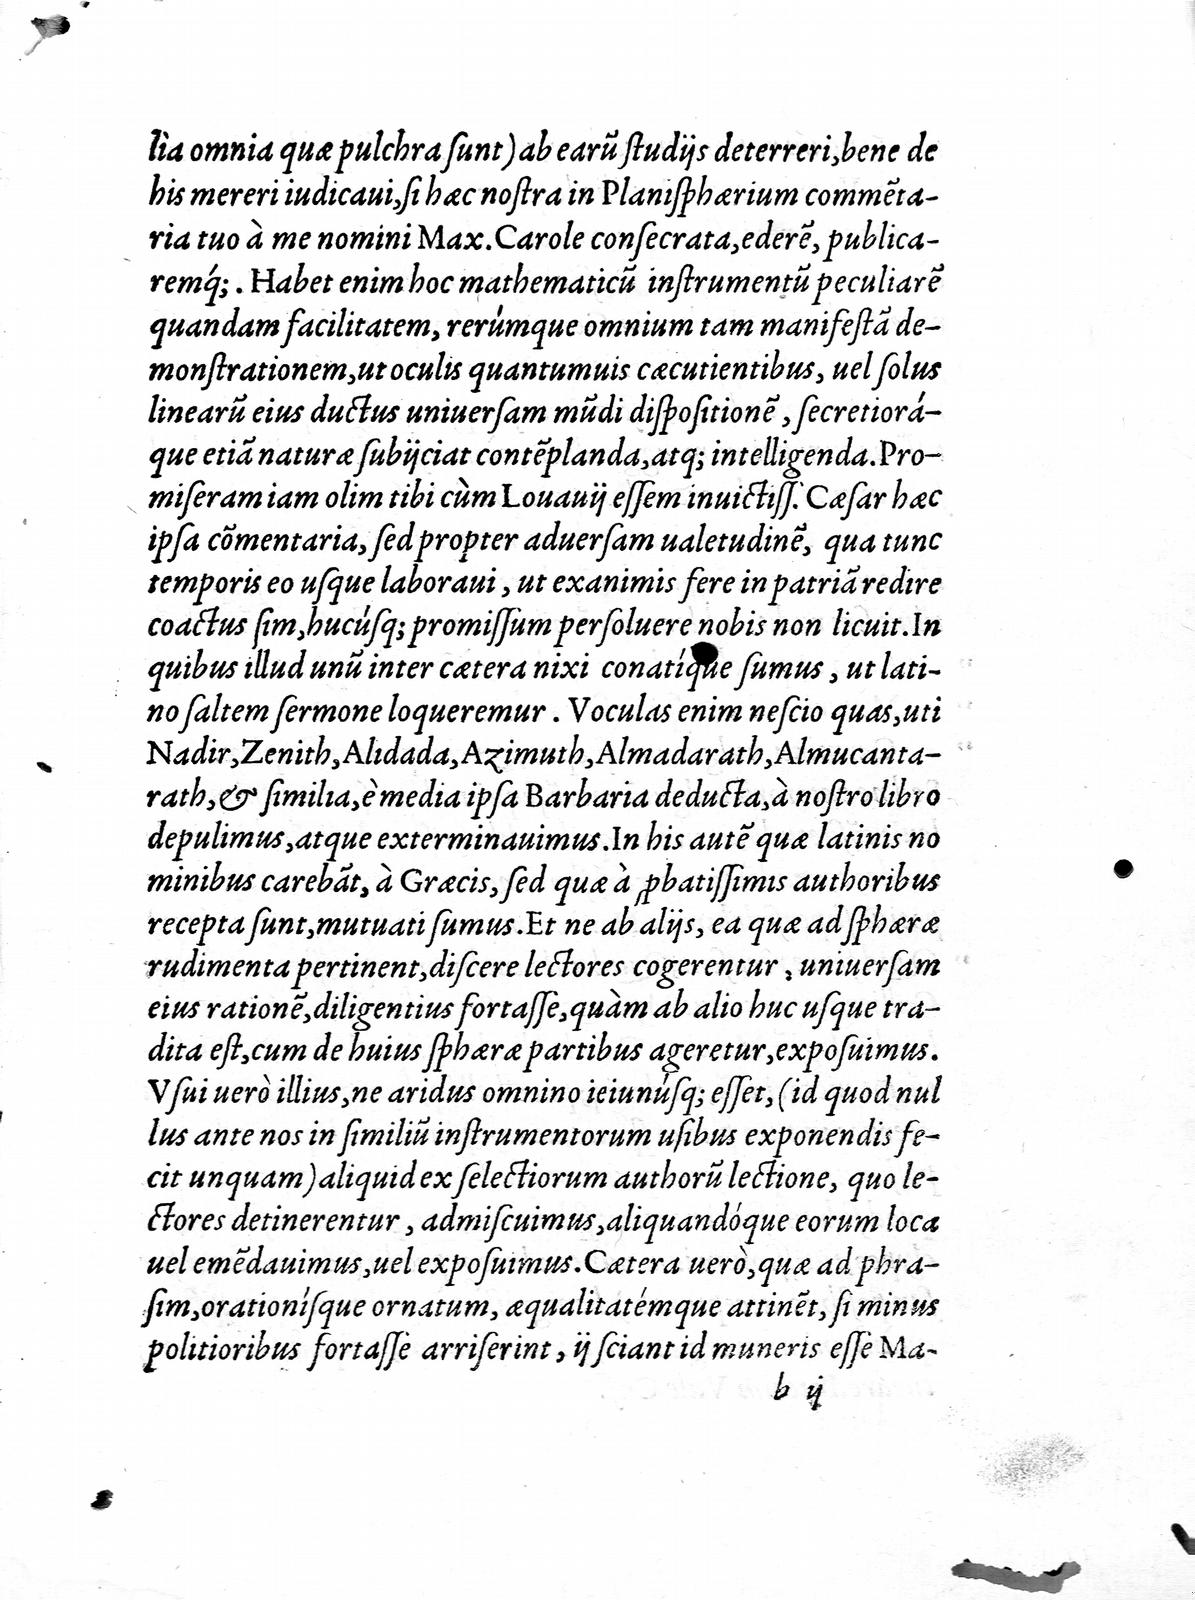 lia omnia quæ pulchra ſunt) ab earũ ſtudijs deterreri, bene de
his mereri iudicaui, ſi hæc noſtra in Planiſphærium commẽta-
ria tuo à me nomini Max. Carole conſecrata, ederẽ, publica-
remq́;. Habet enim hoc mathematicũ inſtrumentũ peculiarẽ
quandam facilitatem, rerúmque omnium tam manifeſtã de-
monſtrationem, ut oculis quantumuis cæcutientibus, uel ſolus
linearũ eius ductus uniuerſam mũdi diſpoſitionẽ, ſecretiorá-
que etiã naturæ ſubijciat contẽplanda, atq; intelligenda. Pro-
miſeram iam olim tibi cùm Louauij eſſem inuictiſſ. Cæſar hæc
ipſa cõmentaria, ſed propter aduerſam ualetudinẽ, qua tunc
temporis eo uſque laboraui, ut exanimis fere in patriã redire
coactus ſim, hucúſq; promiſſum perſoluere nobis non licuit. In
quibus illud unũ inter cætera nixi conatíque ſumus, ut lati-
no ſaltem ſermone loqueremur. Voculas enim neſcio quas, uti
Nadir, Zenith, Alidada, Azimuth, Almadarath, Almucanta-
rath, & ſimilia, è media ipſa Barbaria deducta, à noſtro libro
depulimus, atque exterminauimus. In his autẽ quæ latinis no
minibus carebãt, à Græcis, ſed quæ à ꝓbatiſſimis authoribus
recepta ſunt, mutuati ſumus. Et ne ab alijs, ea quæ ad ſphæræ
rudimenta pertinent, diſcere lectores cogerentur, uniuerſam
eius rationẽ, diligentius fortaſſè, quàm ab alio huc uſque tra-
dita eſt, cum de huius ſphæræ partibus ageretur, expoſuimus.
Vſui uerò illius, ne aridus omnino ieiunúſq; eſſet, (id quod nul
lus ante nos in ſimiliũ inſtrumentorum uſibus exponendis fe-
cit unquam) aliquid ex ſelectiorum authorũ lectione, quo le-
ctores detinerentur, admiſcuimus, aliquandóque eorum loca
uel emẽdauimus, uel expoſuimus. Cætera uerò, quæ ad phra-
ſim, orationíſque ornatum, æqualitatémque attinẽt, ſi minus
politioribus fortaſſè arriſerint, ij ſciant id muneris eſſe Ma-
b ij